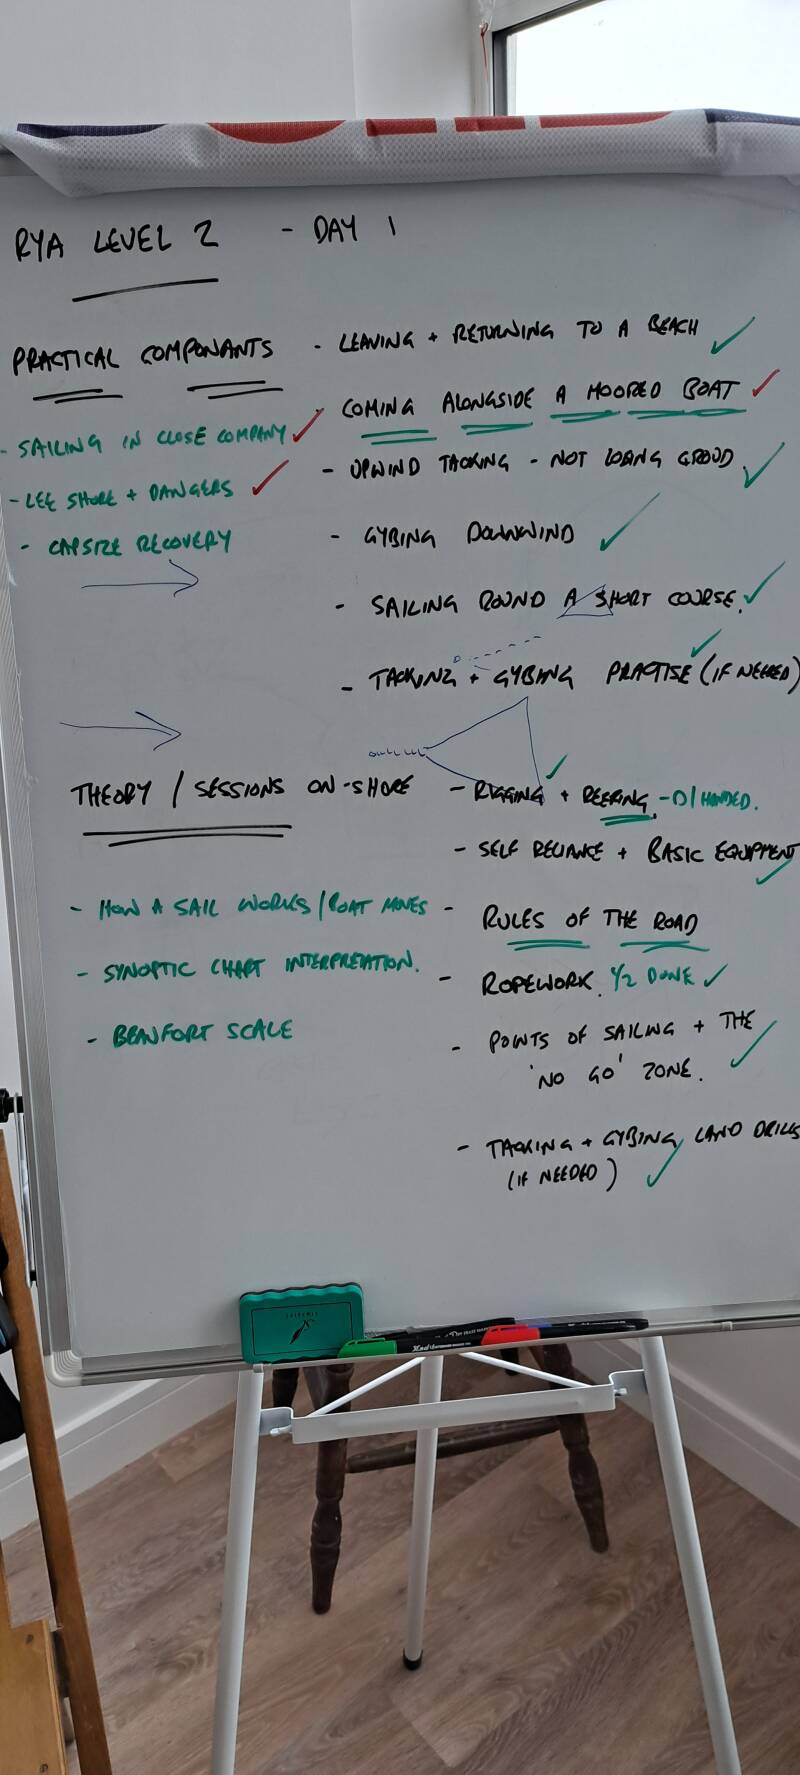 RYA LEVEL 2 - DAY 1
PRACTICAL COMPONANTS
- SAILING IN CLOSE COMPANY
- LEE SHORE + DANGERS
- CAPSIZE RECOVERY
- LEAVING + RETURNING TO A BEACH
COMING ALONGSIDE A MOORED BOAT
- UPWIND TACKING - NOT LOSING
- GYBING DOWNWIND
- SAILING ROUND A SHORT COURSE.
- TACKING + GYBING PRACTISE (IF NEEDED)
THEORY / SESSIONS ON-SHORE
- HOW A SAIL WORKS / BOAT MOVES
- SYNOPTIC CHART
- BEAUFORT SCALE
- RIGGING + REEFING - D/HANDED.
- SELF RELIANCE + BASIC EQUIPMENT
- RULES OF THE ROAD
- ROPEWORK. 1/2 DONE
- POINTS OF SAILING + THE
'NO GO' ZONE.
- TACKING + GYBING LAND DRILLS
(IF NEEDED)